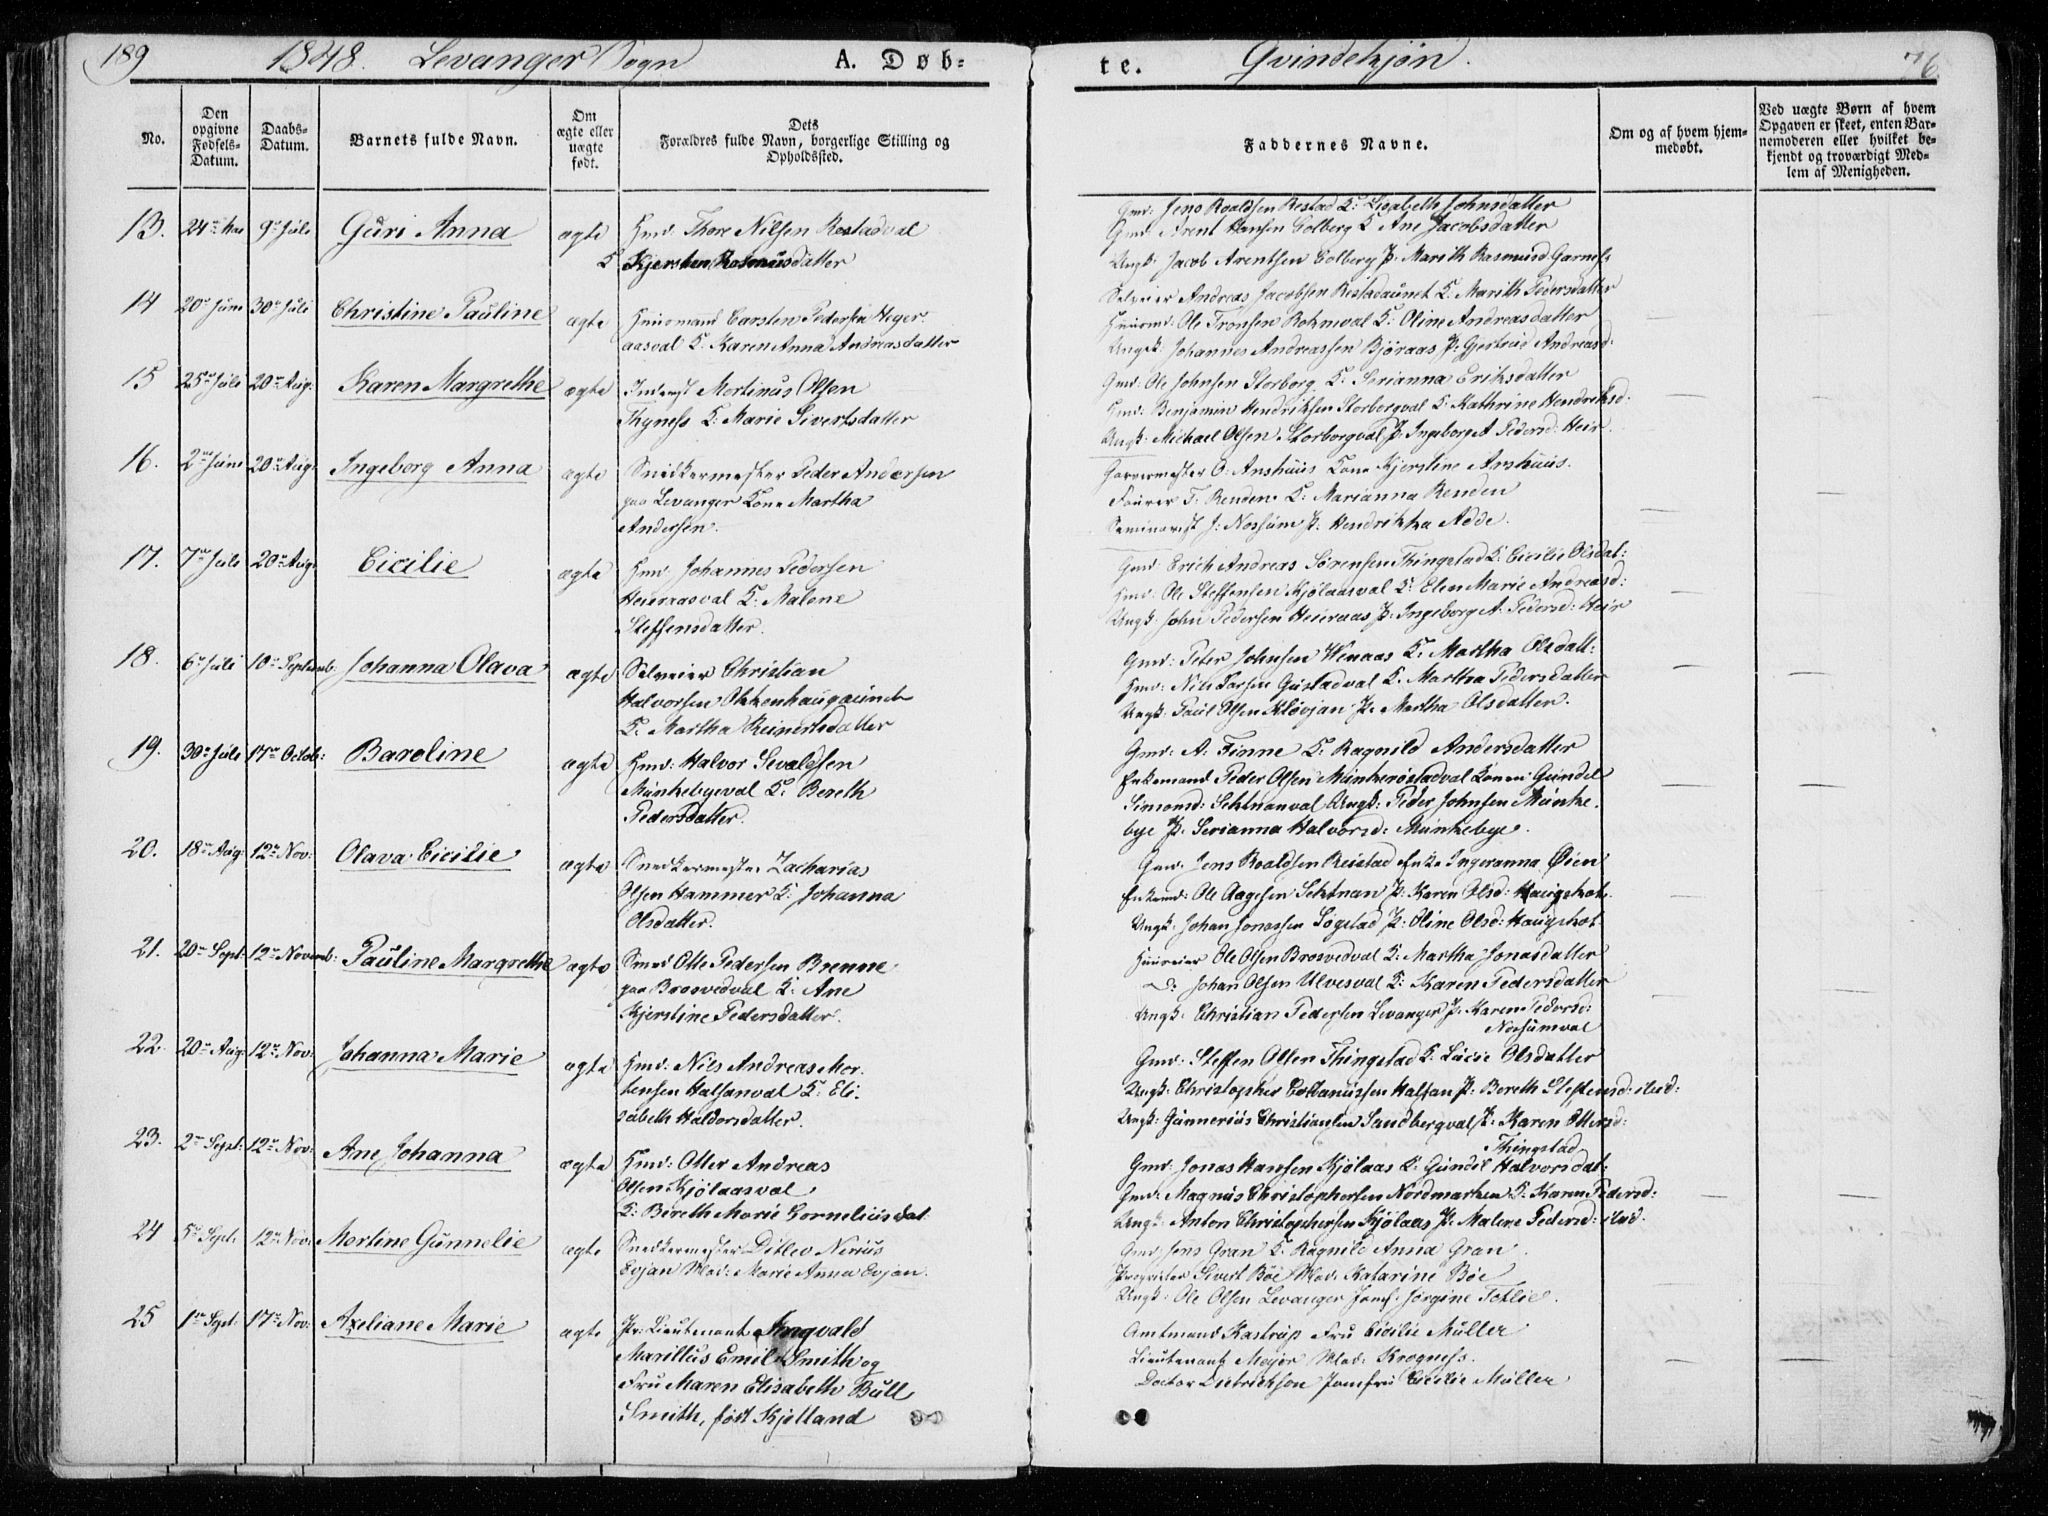 189 1848. Levanger Sogn A. Døb-
te. Qvindekjøn. 76
No.
Den opgivne Fødsels-Datum.
Daabs-Datum.
Barnets fulde Navn.
Om ægte eller uægte født.
Dets
Forældres fulde Navn, borgerlige Stilling og
Opholdssted.
Faddernes Navne.
Om og af hvem hjem-
medøbt.
Ved uægte Børn af hvem
Opgaven er skeet, enten Bar-
nemoderen eller hvilket be-
kjendt og troværdigt Med-
lem af Menigheden.
13. 24de Mai 9de Juli Guri Anna ægte Hmd: Thore Nilsen Restadval
K Kjersten Rasmusdatter
Gmd: Jens Roaldsen Restad K: Lisabeth Johnsdatter
Gmd: Arent Hansen Colberg K Ane Jacobsdatter
Ungk: Jacob Arentsen Colberg P: Marith Rasmusd Garness
14 20de Juni 30de Juli Christine Pauline ægte Huusmand Carsten Pedersen Heger-
aasval K. Karen Anna Andreasdatter
Selveier Andreas Jacobsen Restadaunet K. Marith Pedersdatter
Huusmd: Ole Tronsen Holmval K: Oline Andreasdatter
Ungk: Johannes Andreassen Bjøraas P. Gjertrud Andreasd.
15 25de Juli 20de Aug: Karen Margrethe ægte Inderst Mortinus Olsen
Thyness K: Marie Sivertsdatter
Gmd: Ole Johnsen Storborg K. Serianna Eriksdatter
Hmd: Benjamin Hendriksen Storborgval K Kathrine Hendriksd:
Ungk: Michael Olsen Storborgval P: Ingeborg A Pedersd: Heir.
16. 2den Juni 20de Aug: Ingeborg Anna ægte Snedkermester Peder Andersen
paa Levanger Kone Martha
Andersen.
Garvermester O: Anshuus Kone Kjerstine Anshuus.
Fourer T. Renden K: Marianna Renden
Seminarist J: Nossum P: Hendrikka Adde.
17. 7de Juli 20de Aug: Cicilie ægte Hmd: Johannes Pedersen
Heieraasval K: Malene
Steffensdatter.
Gmd: Erich Andreas Sörensen Thingstad K: Cicilie Olsdat:
Hmd: Ole Steffensen Kjölaasval K: Elen Marie Andreasd:
Ungk: John Pedersen Heieraas P: Ingeborg A: Pedersd: Heir
18. 6te Juli 10de Septemb: Johanna Olava ægte Selveier Christian
Halvorsen Okkenhaugaunet
K: Martha Reinertsdatter
Gmd: Peter Johnsen Wenaas K: Martha Olsdatt:
Hmd: Nils Larsen Gustadval K: Martha Pedersdatter
Ungk: Paul Olsen Kløvjan P. Martha Olsdatter.
19. 30te Juli 17de Octob: Baroline ægte Hmd: Halvor Sevaldsen
Munkebyeval K: Bereth
Pedersdatter.
Gmd: A: Finne K. Ragnild Andersdatter
Enkemand Peder Olsen Munkeröstadval Konen Gundel
Simonsd: Sektnanval Ungk: Peder Johnsen Munke-
bye P. Serianna Halvorsd: Munkebye.
20. 18de Aug: 12te Nov: Olava Cicilie ægte Snedkermester Zacharias
Olsen Hammer K: Johanna
Olsdatter.
Gmd: Jens Roaldsen Reistad Enke Ingeranna Øien
Enkemd: Ole Aagesen Sektnan P: Karen Olsd: Haugskot.
Ungk: Johan Jonassen Søgstad P: Oline Olsd: Haugskot.
21. 20de Sept: 12te Novemb: Pauline Margrethe ægte Smed Otte Pedersen Brenne
paa Brosvedval K: Ane
Kjerstine Pedersdatter.
Huuseier Ole Olsen Brosvedval K: Martha Jonasdatter
D: Johan Olsen Ulvesval K: Karen Pedersdatter
Ungk: Christian Pedersen Levanger P: Karen Pedersd:
Nossumval
22. 20de Aug: 12te Nov: Johanna Marie ægte Hmd: Nils Andreas Mor-
tensen Halsanval K: Eli-
sabeth Haldorsdatter.
Gmd: Steffen Olsen Thingstad K: Lucie Olsdatter
Ungk: Christopher Cottaniussen Halsan P: Bereth Steffensd: ibid:
Ungk: Gunnerius Christiansen Sandbergval P: Karen Ottersd:
Thingstad
23. 2den Sept: 12te Nov: Ane Johanna ægte Hmd: Otter Andreas
Olsen Kjölaasval
K: Bereth Marie Corneliusdat:
Gmd: Jonas Hansen Kjölaas K: Gundil Halvorsdat:
Hmd: Magnus Christophersen Nordmarken K: Karen Pedersd:
Ungk: Anton Christophersen Kjölaas P: Malene Pedersd: ibid.
24 5te Sept: 12te Nov: Mortine Gunnelie ægte Snedkermester Ditlev Nerius
Evjan Mad: Marie Anna Evjan.
Gmd: Jens Gran K: Ragnild Anna Gran
Proprietær Sivert Böe Mad: Katarine Böe
Ungk: Ole Olsen Levanger Jomf: Jörgine Fotlie.
25 1ste Sept: 17de Nov: Axeliane Marie ægte Pr: Lieutenant Ingvald
Marillus Emil Smith og
Fru Maren Elisabeth Bull
Smith, født Kjelland
Amtmand Kastrup Fru Cicilie Müller
Lieutenant Mejer Mad: Krogness.
Doctor Dietrickson Jomfru Cecilie Müller